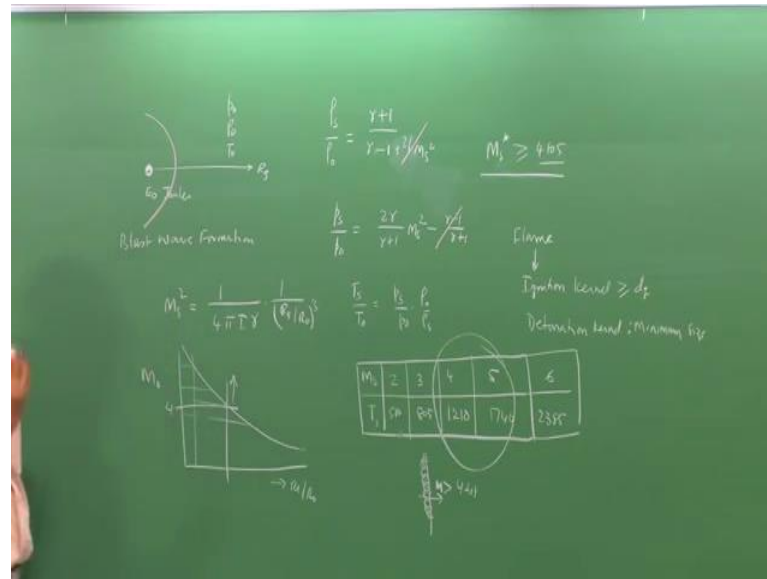 p₀
ρ₀
T₀
R_s
E₀ Joules
Blast Wave Formation
ρ_s/ρ₀ = (γ+1)/(γ-1+2/M_s²)
M_s* ≥ 4 to 5
p_s/p₀ = 2γ/(γ+1) M_s² - (γ-1)/(γ+1)
Flame
↓
Ignition kernel ≥ d_q
Detonation kernel : Minimum Size
M_s² = 1/(4πIγ) · 1/(R_s/R₀)³
T_s/T₀ = p_s/p₀ · ρ₀/ρ_s
M_s
4
→ R_s/R₀
M_s 2 3 4 5 6
T_s 805 1210 1740 2385